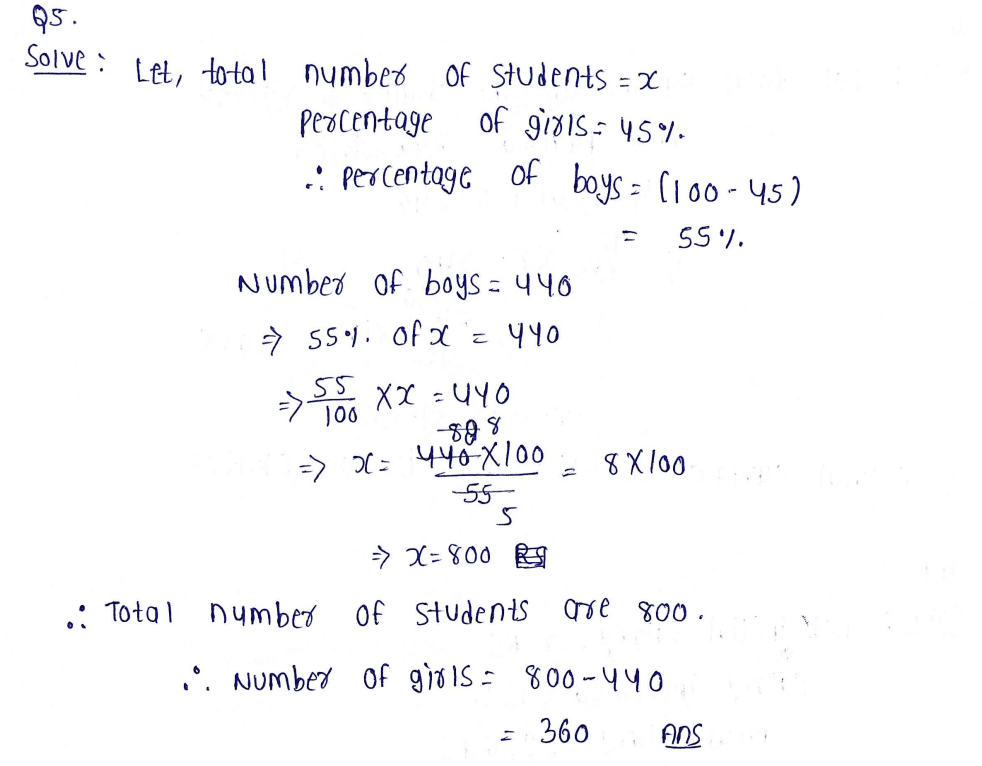 Q5.
Solve : Let, total number of students = x
Percentage of girls = 45%.
∴ percentage of boys = (100 - 45)
= 55%.
Number of boys = 440
⇒ 55%. of x = 440
⇒ 55/100 × x = 440
80 8
⇒ x = 440×100/55 = 8×100
5
⇒ x = 800
∴ Total number of students are 800.
∴ Number of girls = 800-440
= 360 Ans